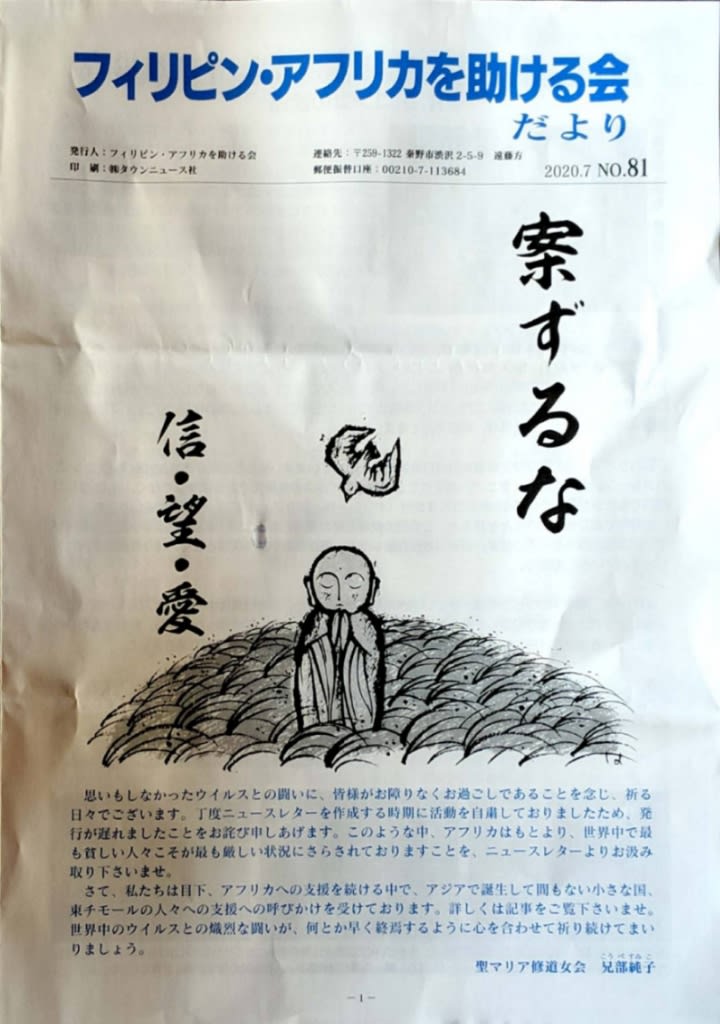 フィリピン・アフリカを助ける会
だより
発行人：フィリピン・アフリカを助ける会
印　刷：㈱タウンニュース社
連絡先：〒259-1322 秦野市渋沢 2-5-9　遠藤方
郵便振替口座：00210-7-113684
2020.7 NO.81
案ずるな
信・望・愛
　思いもしなかったウイルスとの闘いに、皆様がお障りなくお過ごしであることを念じ、祈る
日々でございます。丁度ニュースレターを作成する時期に活動を自粛しておりましたため、発
行が遅れましたことをお詫び申しあげます。このような中、アフリカはもとより、世界中で最
も貧しい人々こそが最も厳しい状況にさらされておりますことを、ニュースレターよりお汲み
取り下さいませ。
　さて、私たちは目下、アフリカへの支援を続ける中で、アジアで誕生して間もない小さな国、
東チモールの人々への支援への呼びかけを受けております。詳しくは記事をご覧下さいませ。
世界中のウイルスとの熾烈な闘いが、何とか早く終焉するように心を合わせて祈り続けてまい
りましょう。
こうべすみこ
聖マリア修道女会　兄部純子
－1－